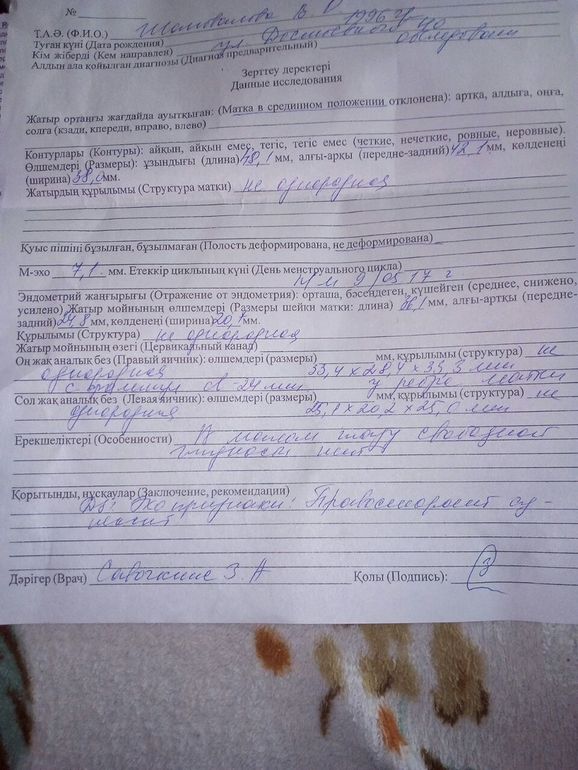 №
Т.А.Ә. (Ф.И.О.) В. 1996 г
Туған күні (Дата рождения)
Кім жіберді (Кем направлен) ул.
Алдын ала қойылған диагнозы (Диагноз предварительный)
Зерттеу деректері
Данные исследования
Жатыр ортаңғы жағдайда ауытқыған: (Матка в срединном положении отклонена): артқа, алдыға, оңға,
солға (кзади, кпереди, вправо, влево)
Контурлары (Контуры): айқын, айқын емес, тегіс, тегіс емес (четкие, нечеткие, ровные, неровные).
Өлшемдері (Размеры): ұзындығы (длина) 48,1 мм, алғы-артқы (передне-задний) 42,1 мм, көлденеңі
(ширина) 38,0 мм.
Жатырдың құрылымы (Структура матки) не однородная
Қуыс пішіні бұзылған, бұзылмаған (Полость деформирована, не деформирована)
М-эхо 7,1 мм. Етеккір циклының күні (День менструального цикла)
П/М 9/05 17 г
Эндометрий жаңғырығы (Отражение от эндометрия): орташа, бәсеңдеген, күшейген (среднее, снижено,
усилено) Жатыр мойнының өлшемдері (Размеры шейки матки: длина) мм, алғы-артқы (передне-
задний) 24,8 мм, көлденеңі (ширина) 20,1 мм.
Құрылымы (Структура) не однородная
Жатыр мойнының өзегі (Цервикальный канал)
Оң жақ аналық без (Правый яичник): өлшемдері (размеры) мм, құрылымы (структура) не
однородная 53,4 х 28,4 х 35,5 мм
с d-24 мм у ребра матки
Сол жақ аналық без (Левая яичник): өлшемдері (размеры) мм, құрылымы (структура) не
однородная 25,1 х 20,2 х 25,0 мм
Ерекшеліктері (Особенности) В малом тазу свободной
жидкости нет
Қорытынды, нұсқаулар (Заключение, рекомендации)
Эхопризнаки: Правосторонний
Дәрігер (Врач) З. А Қолы (Подпись):